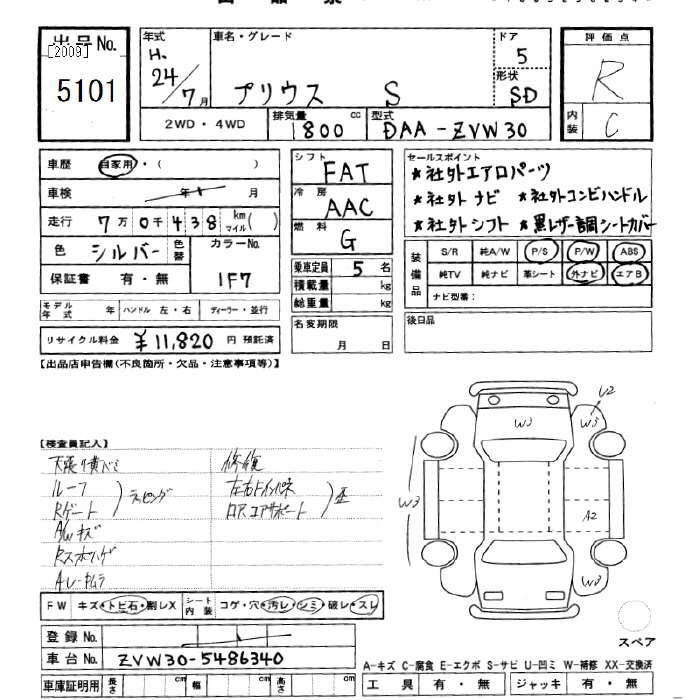 出品No.
[2009]
5101
年式
H.
24/7月
車名・グレード
プリウス S
ドア
5
形状
SD
評価点
R
内装
C
2WD・4WD
排気量
1800 cc
型式
DAA-ZVW30
車歴 自家用・( )
車検 年 月
走行 7万0千438 km マイル( )
色 シルバー 色替 カラーNo.
1F7
保証書 有・無
モデル年式 年 ハンドル 左・右 ディーラー・並行
リサイクル料金 ¥11,820 円 預託済
シフト
FAT
冷房
AAC
燃料
G
乗車定員 5 名
積載量 kg
総重量 kg
名変期限
月 日
セールスポイント
★社外エアロパーツ
★社外ナビ ★社外コンビハンドル
★社外シフト ★黒レザー調シートカバー
装備品
S/R 純A/W P/S P/W ABS
純TV 純ナビ 革シート 外ナビ エアB
ナビ型番:
後日品
【出品店申告欄(不良箇所・欠品・注意事項等)】
【検査員記入】
ルーフ
Rゲート
修復
左右
歪
W3
U2
W3
W3
A2
W3
FW キズ・トビ石・割レX シート内装 コゲ・穴・汚レ・シミ・破レ・スレ
登録No.
車台No. ZVW30-5486340
車庫証明用 長さ cm 幅 cm 高さ cm
スペア
A-キズ C-腐食 E-エクボ S-サビ U-凹ミ W-補修 XX-交換済
工具 有・無 ジャッキ 有・無